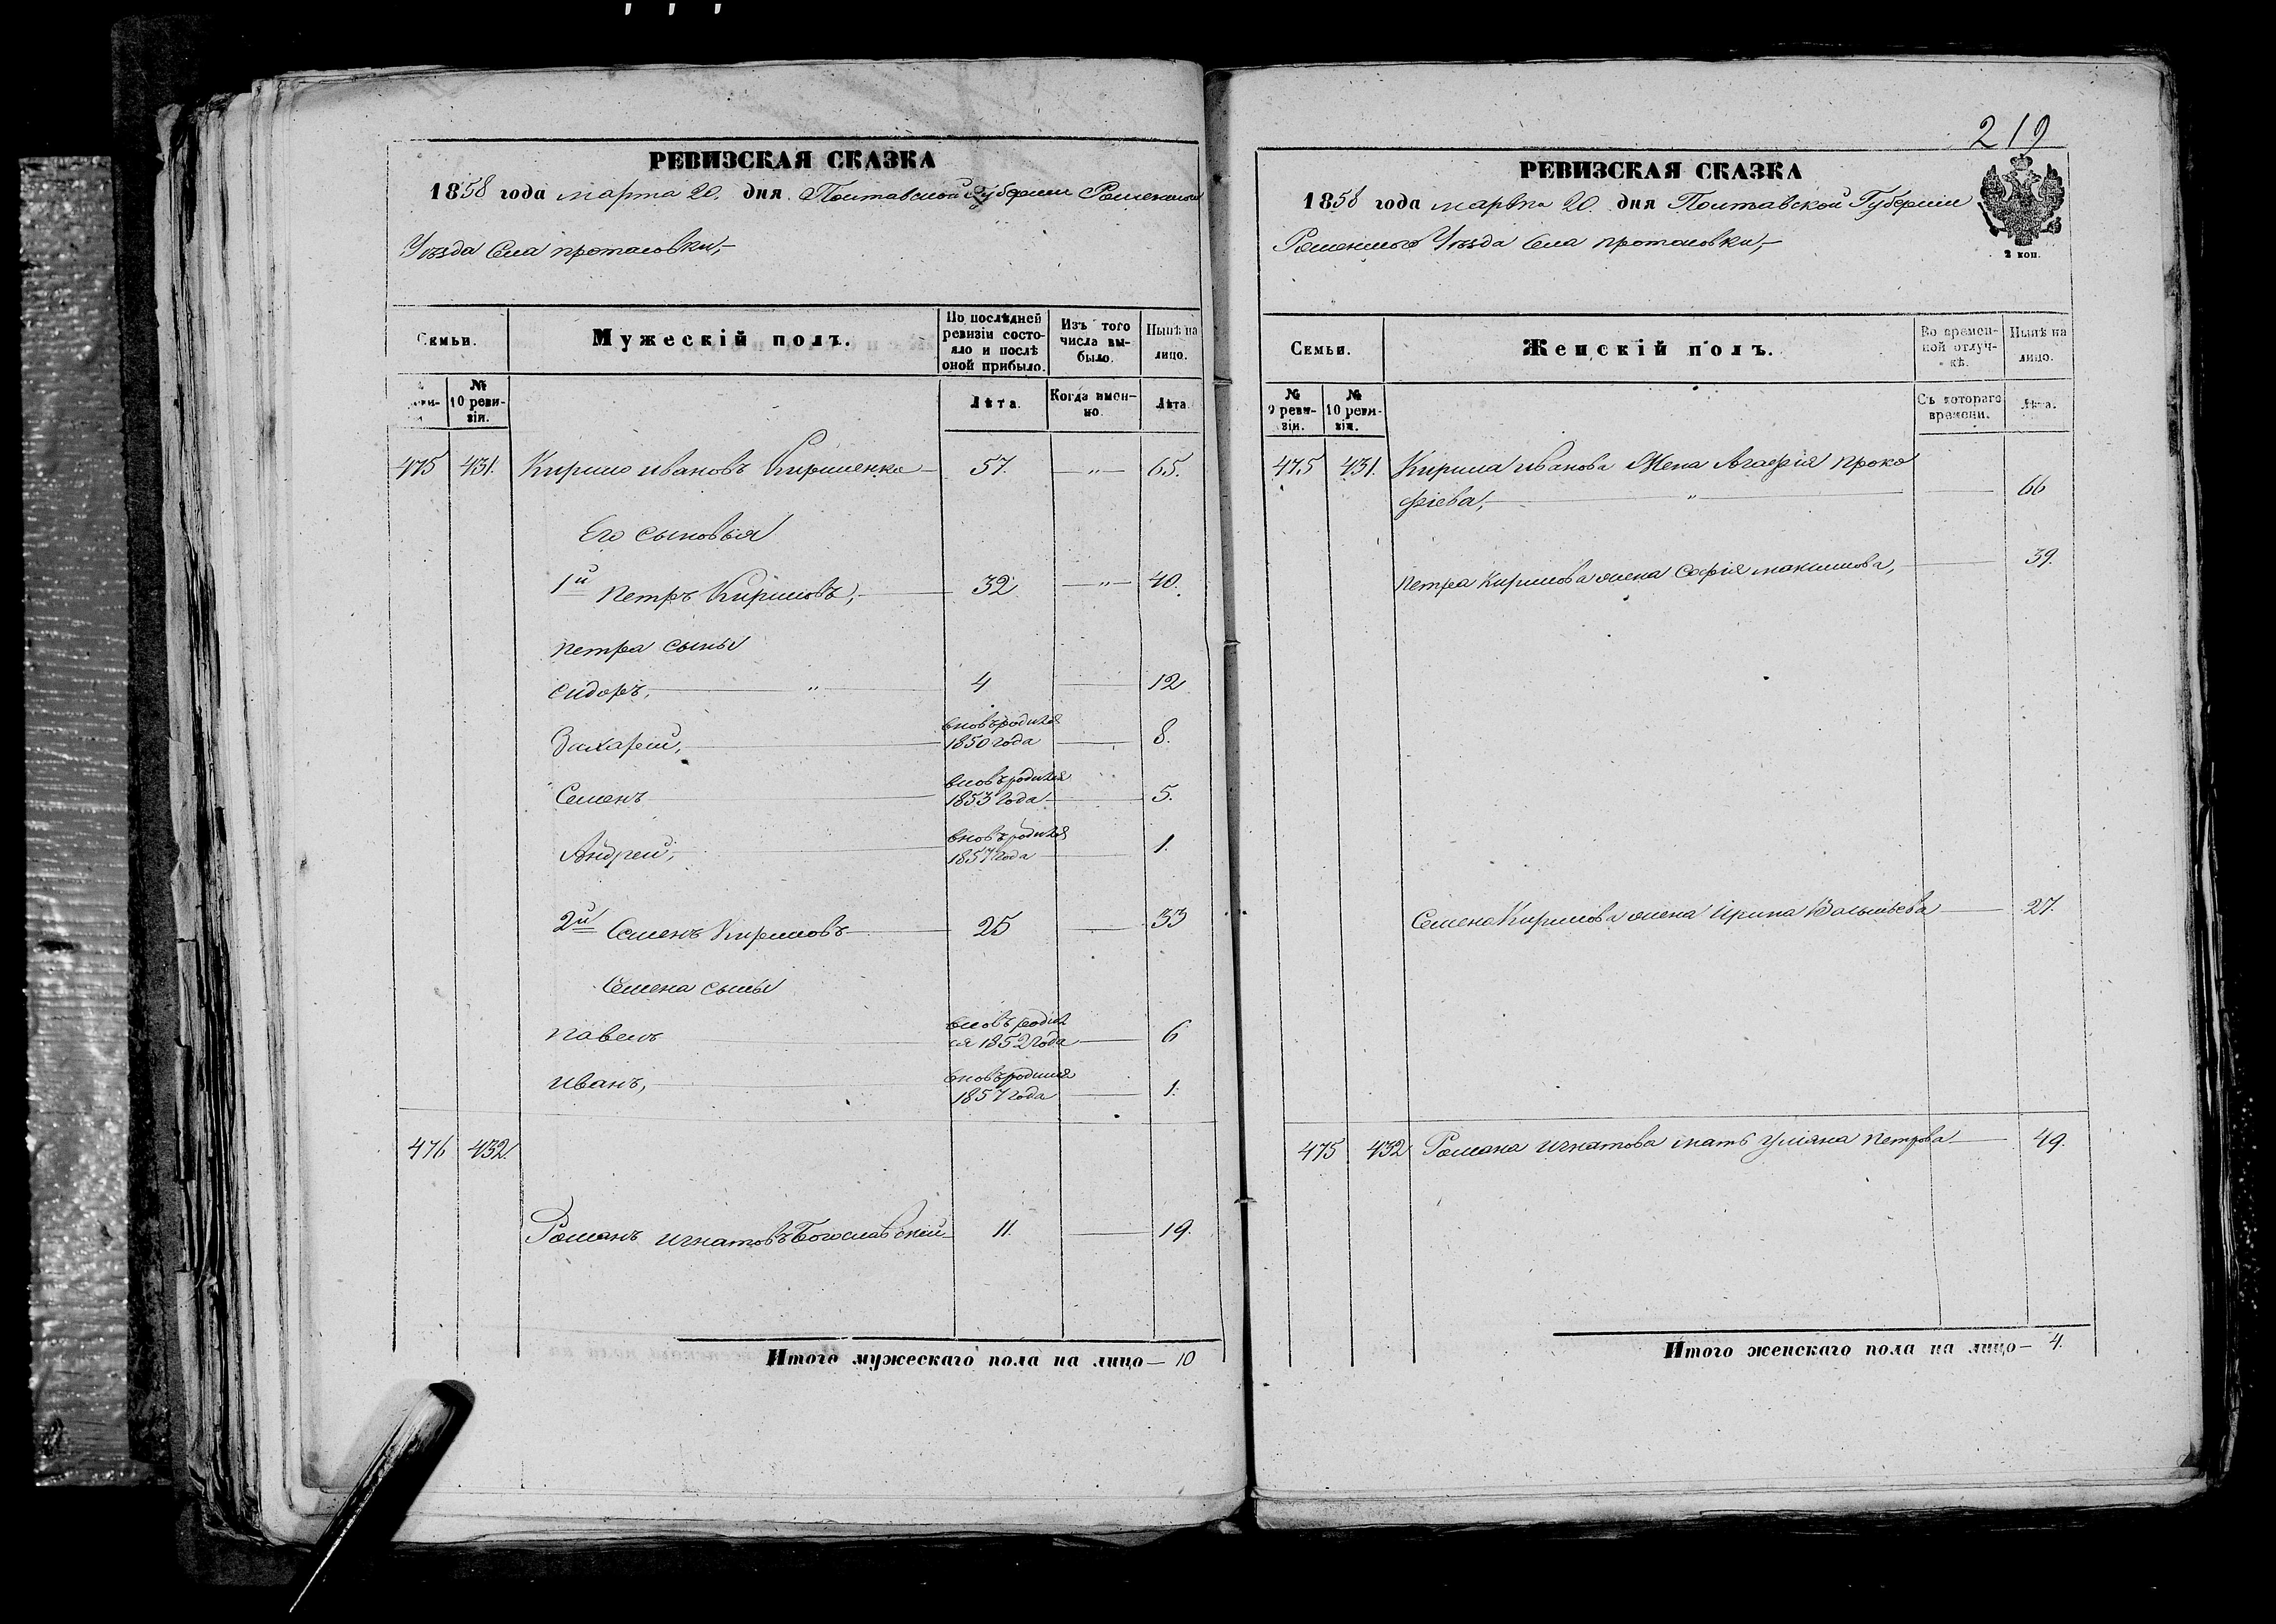 РЕВИЗСКАЯ СКАЗКА
1858 года марта 20. дня Полтавской Губернии Роменского
Уѣзда Села протасовки,
Семьи.
Мужескій полъ.
По послѣдней ревизіи состояло и послѣ оной прибыло.
Изъ того числа выбыло.
Нынѣ на лицо.
№ 10 ревизіи.
Лѣта.
Когда именно.
Лѣта.
475 431. Кирило ивановъ Кириленко 57. 65.
Его сыновья
1й петръ Кириловъ, 32 40.
петра сыны
сидоръ, 4 12
Захарей, вновь родился 1850 года 8.
Семенъ вновь родился 1853 года 5.
Андрей, вновь родился 1857 года 1.
2й Семенъ Кириловъ 25 33
Семена сыны
павелъ вновь родился 1852 года 6
иванъ, вновь родился 1857 года 1.
476 432.
Романъ игнатовъ Богославскей 11. 19.
Итого мужескаго пола на лицо 10
219
РЕВИЗСКАЯ СКАЗКА
1858 года марта 20. дня Полтавской Губерніи
Роменского Уѣзда Села протасовки,
2 коп.
Семьи.
Женскій полъ.
Во временной отлучкѣ.
Нынѣ на лицо.
№ 9 ревизіи.
№ 10 ревизіи.
Съ котораго времени.
Лѣта.
475 431. Кирила иванова Жена Агафія проко
фіева, 66
петра Кирилова жена Софія максимова, 39.
Семена Кирилова жена ирина Васильева 27.
475 432 Романа игнатова мать уліяна петрова 49.
Итого женскаго пола на лицо 4.